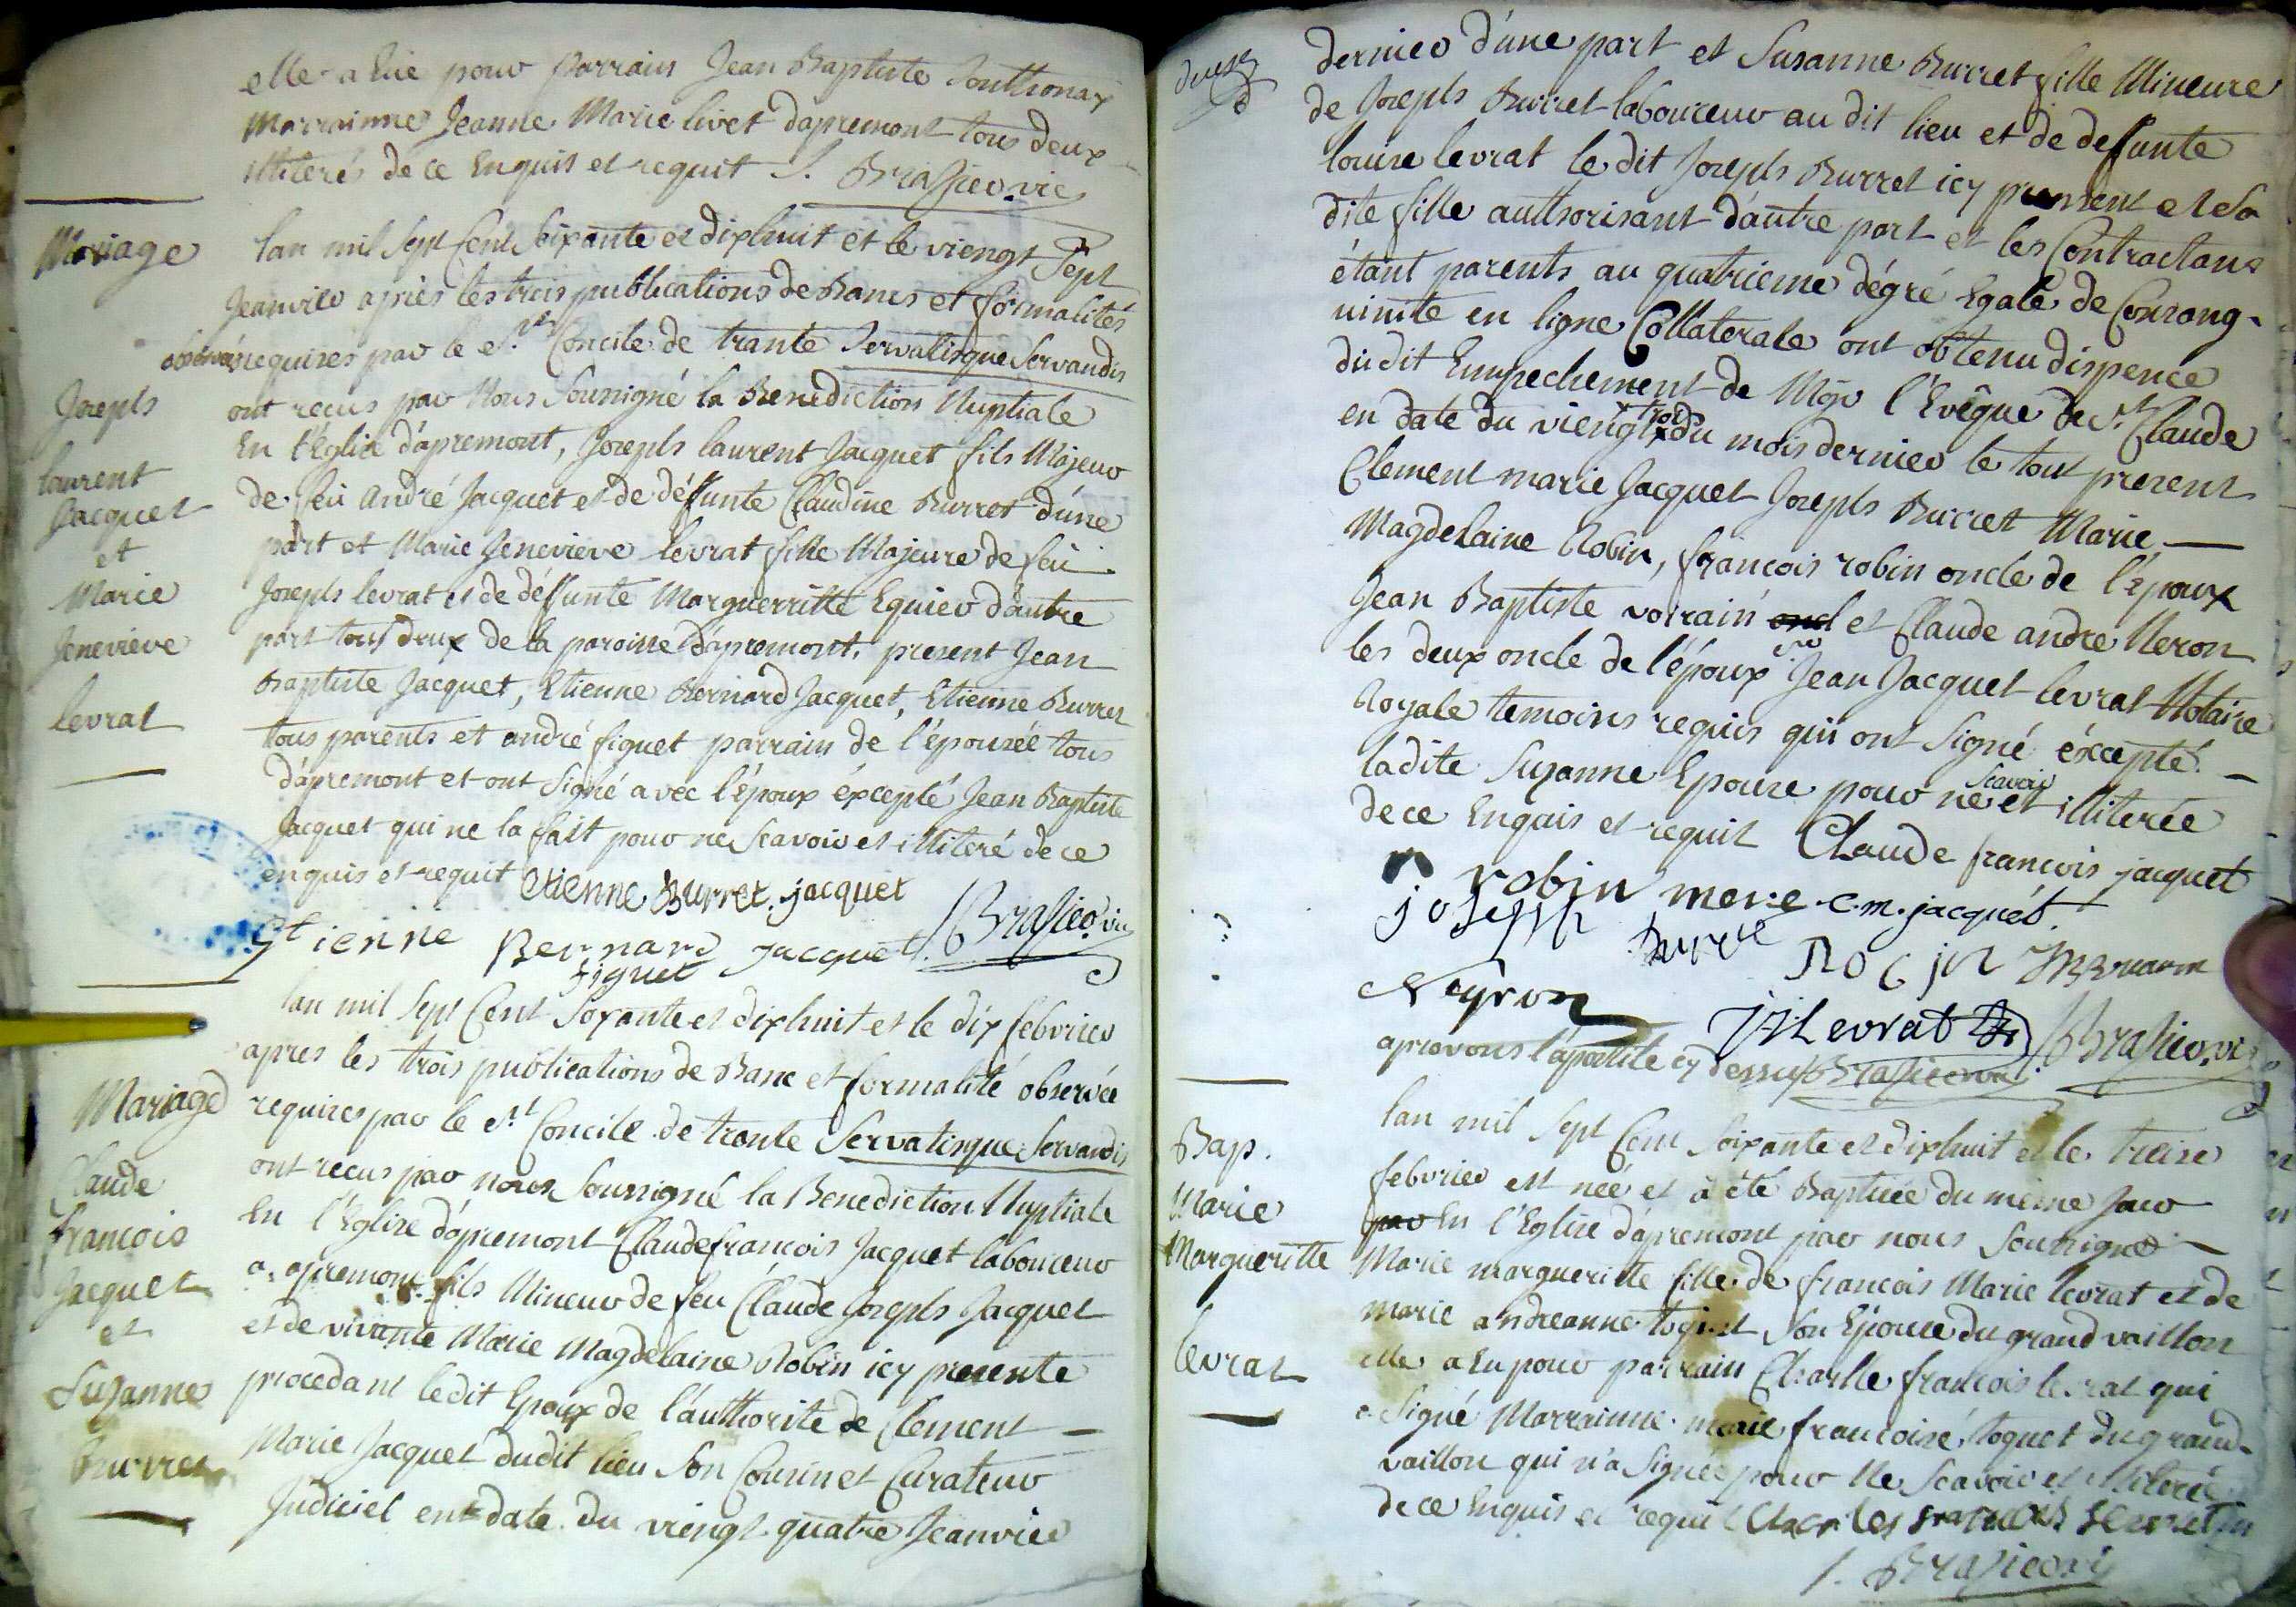 elle a Eüe pour parrain Jean Baptiste Sonthonax
Marrainne Jeanne Marie livet dapremont tous deux
illiterés de ce Enquis et requit J. Brasier vic
Mariage
lan mil Sept Cent Soixante et dixhuit et le viengt Sept
Jeanvier après les trois publications de Bancs et formalités
observées requises par le St. Concile de trante Servatisque Servandis
Joseph
laurent
Jacquet
et
Marie
Jenevieve
levrat
ont recus par Nous Sousigné la Benediction Nuptiale
En l'Eglise d'apremont, Joseph laurent Jacquet fils Majeur
de feü André Jacquet et de déffunte Claudine Burret d'une
part et Marie Jenevieve levrat fille Majeure de feü
Joseph levrat et de déffunte Marguerritte Eguier d'autre
part tous deux de la paroisse d'apremont, present Jean
Baptiste Jacquet, Etienne Bernard Jacquet, Etienne Burret
tous parents et andré figuet parrain de l'épousée tous
d'apremont et ont Signé avec l'Epoux éxcepté Jean Baptiste
Jacquet qui ne la fait pour ne Scavoir et illiteré de ce
enquis et requit etienne Burret jacquet
Etienne Bernard jacquet J Brasier vic
figuet
lan mil Sept Cent Soxante et dixhuit et le dix febvrier
apres les trois publications de Banc et formalité observée
Mariage
Claude
francois
Jacquet
et
Suzanne
Burret
requises par le St Concile de trante Servatisque Servandis
ont recus par nous Soussigné la Benediction Nuptiale
En l'Eglise d'apremont Claude francois Jacquet laboureur
a apremont fils Mineur de feu Claude Joseph Jacquet
et de vivante Marie Magdelaine Robin icy presente
procedant ledit Epoux de l'authorité de Clement
Marie Jacquet dudit lieu Son Cousin et Curateur
Judiciel en date du viengt quatre Jeanvier
dernier d'une part et Susanne Burret fille Mineure
de Joseph Burret laboureur au dit lieu et de deffunte
louise levrat le dit Joseph Burret icy present et sa
dite fille authorisant d'autre part et les Contractans
étant parents au quatrieme dégré Egale de Consang-
uinité en ligne Collaterale ont obtenu dispence
dudit Empechement de Mgr l'Evêque de St Claude
en date du viengt trois du mois dernier le tout present
Clement marie Jacquet Joseph Burret Marie
Magdelaine Robin, francois robin oncle de l'époux
Jean Baptiste voirain oncl et Claude andre Neron
les deux oncle de l'époux Sr Jean Jacquet levrat Notaire
Royale temoins requis qui ont Signé éxcepté
ladite Suzanne Epouse pour ne Scavoir et illiterée
de ce Enquis et requit Claude francois jacquet
robin mere c.m. jacquet
joseph Burret robin
Neyron
JJ Levrat J Brasier vic
aprovons l'apostile cy dessus Brasier vic
Bap.
Marie
Margueritte
levrat
lan mil Sept Cent Soixante et dixhuit et le treise
febvrier est née et à été Baptisée du mème Jour
par En l'Eglise d'apremont par nous Sousigné
Marie margueritte fille de francois Marie levrat et de
marie andreanne Son Epouse du grand vaillon
elle a Eu pour parrain Charle francois levrat qui
a Signé Marrainne marie francoise toquet du grand-
vaillon qui n'a Signée pour Ne Scavoir et illiterée
de ce Enquis et requit Charles francois
J. Brasier vic